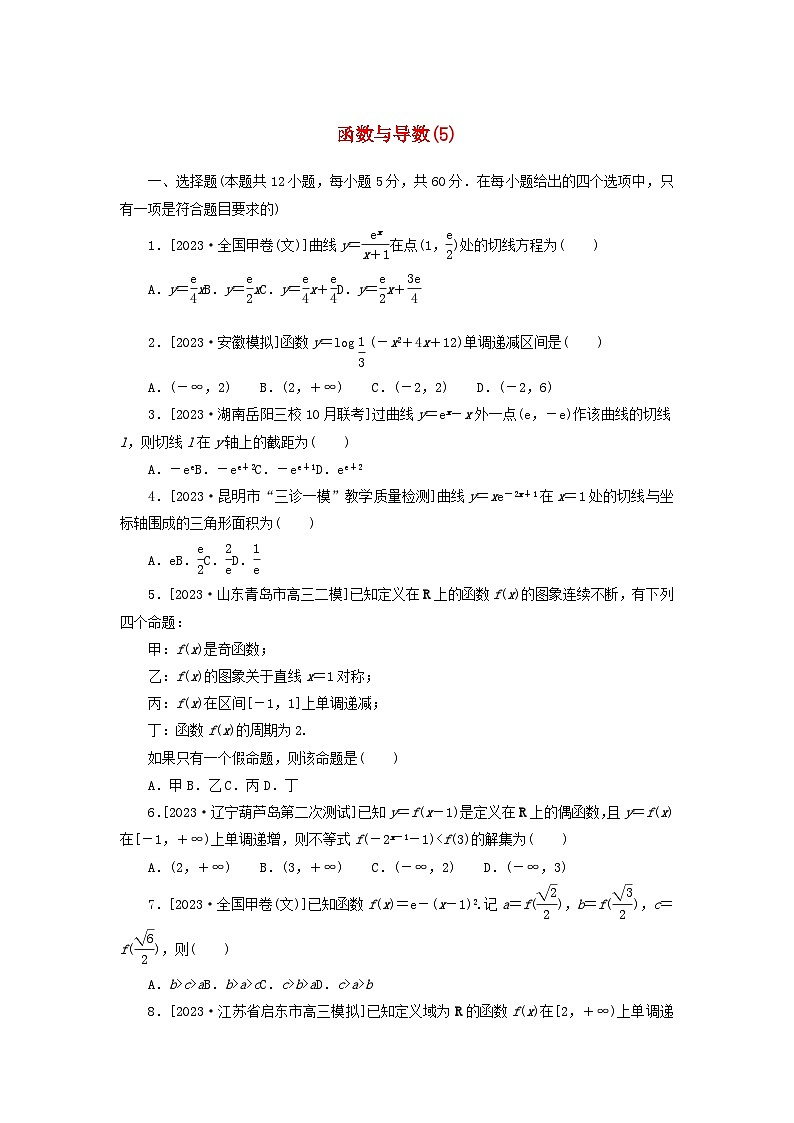 函数与导数(5)
一、选择题(本题共12小题，每小题5分，共60分．在每小题给出的四个选项中，只
有一项是符合题目要求的)
1．[2023·全国甲卷(文)]曲线y＝\frac{e^x}{x＋1}在点(1，\frac{e}{2})处的切线方程为(　　)
A．y＝\frac{e}{4}xB．y＝\frac{e}{2}xC．y＝\frac{e}{4}x＋\frac{e}{4}D．y＝\frac{e}{2}x＋\frac{3e}{4}
2．[2023·安徽模拟]函数y＝log_{\frac{1}{3}}(－x²＋4x＋12)单调递减区间是(　　)
A．(－∞，2)　　B．(2，＋∞)　　C．(－2，2)　　D．(－2，6)
3．[2023·湖南岳阳三校10月联考]过曲线y＝e^x－x外一点(e，－e)作该曲线的切线
l，则切线l在y轴上的截距为(　　)
A．－e^eB．－e^{e＋2}C．－e^{e＋1}D．e^{e＋2}
4．[2023·昆明市“三诊一模”教学质量检测]曲线y＝xe^{－2x＋1}在x＝1处的切线与坐
标轴围成的三角形面积为(　　)
A．eB．\frac{e}{2}C．\frac{2}{e}D．\frac{1}{e}
5．[2023·山东青岛市高三二模]已知定义在R上的函数f(x)的图象连续不断，有下列
四个命题：
甲：f(x)是奇函数；
乙：f(x)的图象关于直线x＝1对称；
丙：f(x)在区间[－1，1]上单调递减；
丁：函数f(x)的周期为2.
如果只有一个假命题，则该命题是(　　)
A．甲B．乙C．丙D．丁
6.[2023·辽宁葫芦岛第二次测试]已知y＝f(x－1)是定义在R上的偶函数，且y＝f(x)
在[－1，＋∞)上单调递增，则不等式f(－2^{x－1}－1)<f(3)的解集为(　　)
A．(2，＋∞)　　B．(3，＋∞)　　C．(－∞，2)　　D．(－∞，3)
7．[2023·全国甲卷(文)]已知函数f(x)＝e－(x－1)².记a＝f(\frac{\sqrt{2}}{2})，b＝f(\frac{\sqrt{3}}{2})，c＝
f(\frac{\sqrt{6}}{2})，则(　　)
A．b>c>aB．b>a>cC．c>b>aD．c>a>b
8．[2023·江苏省启东市高三模拟]已知定义域为R的函数f(x)在[2，＋∞)上单调递